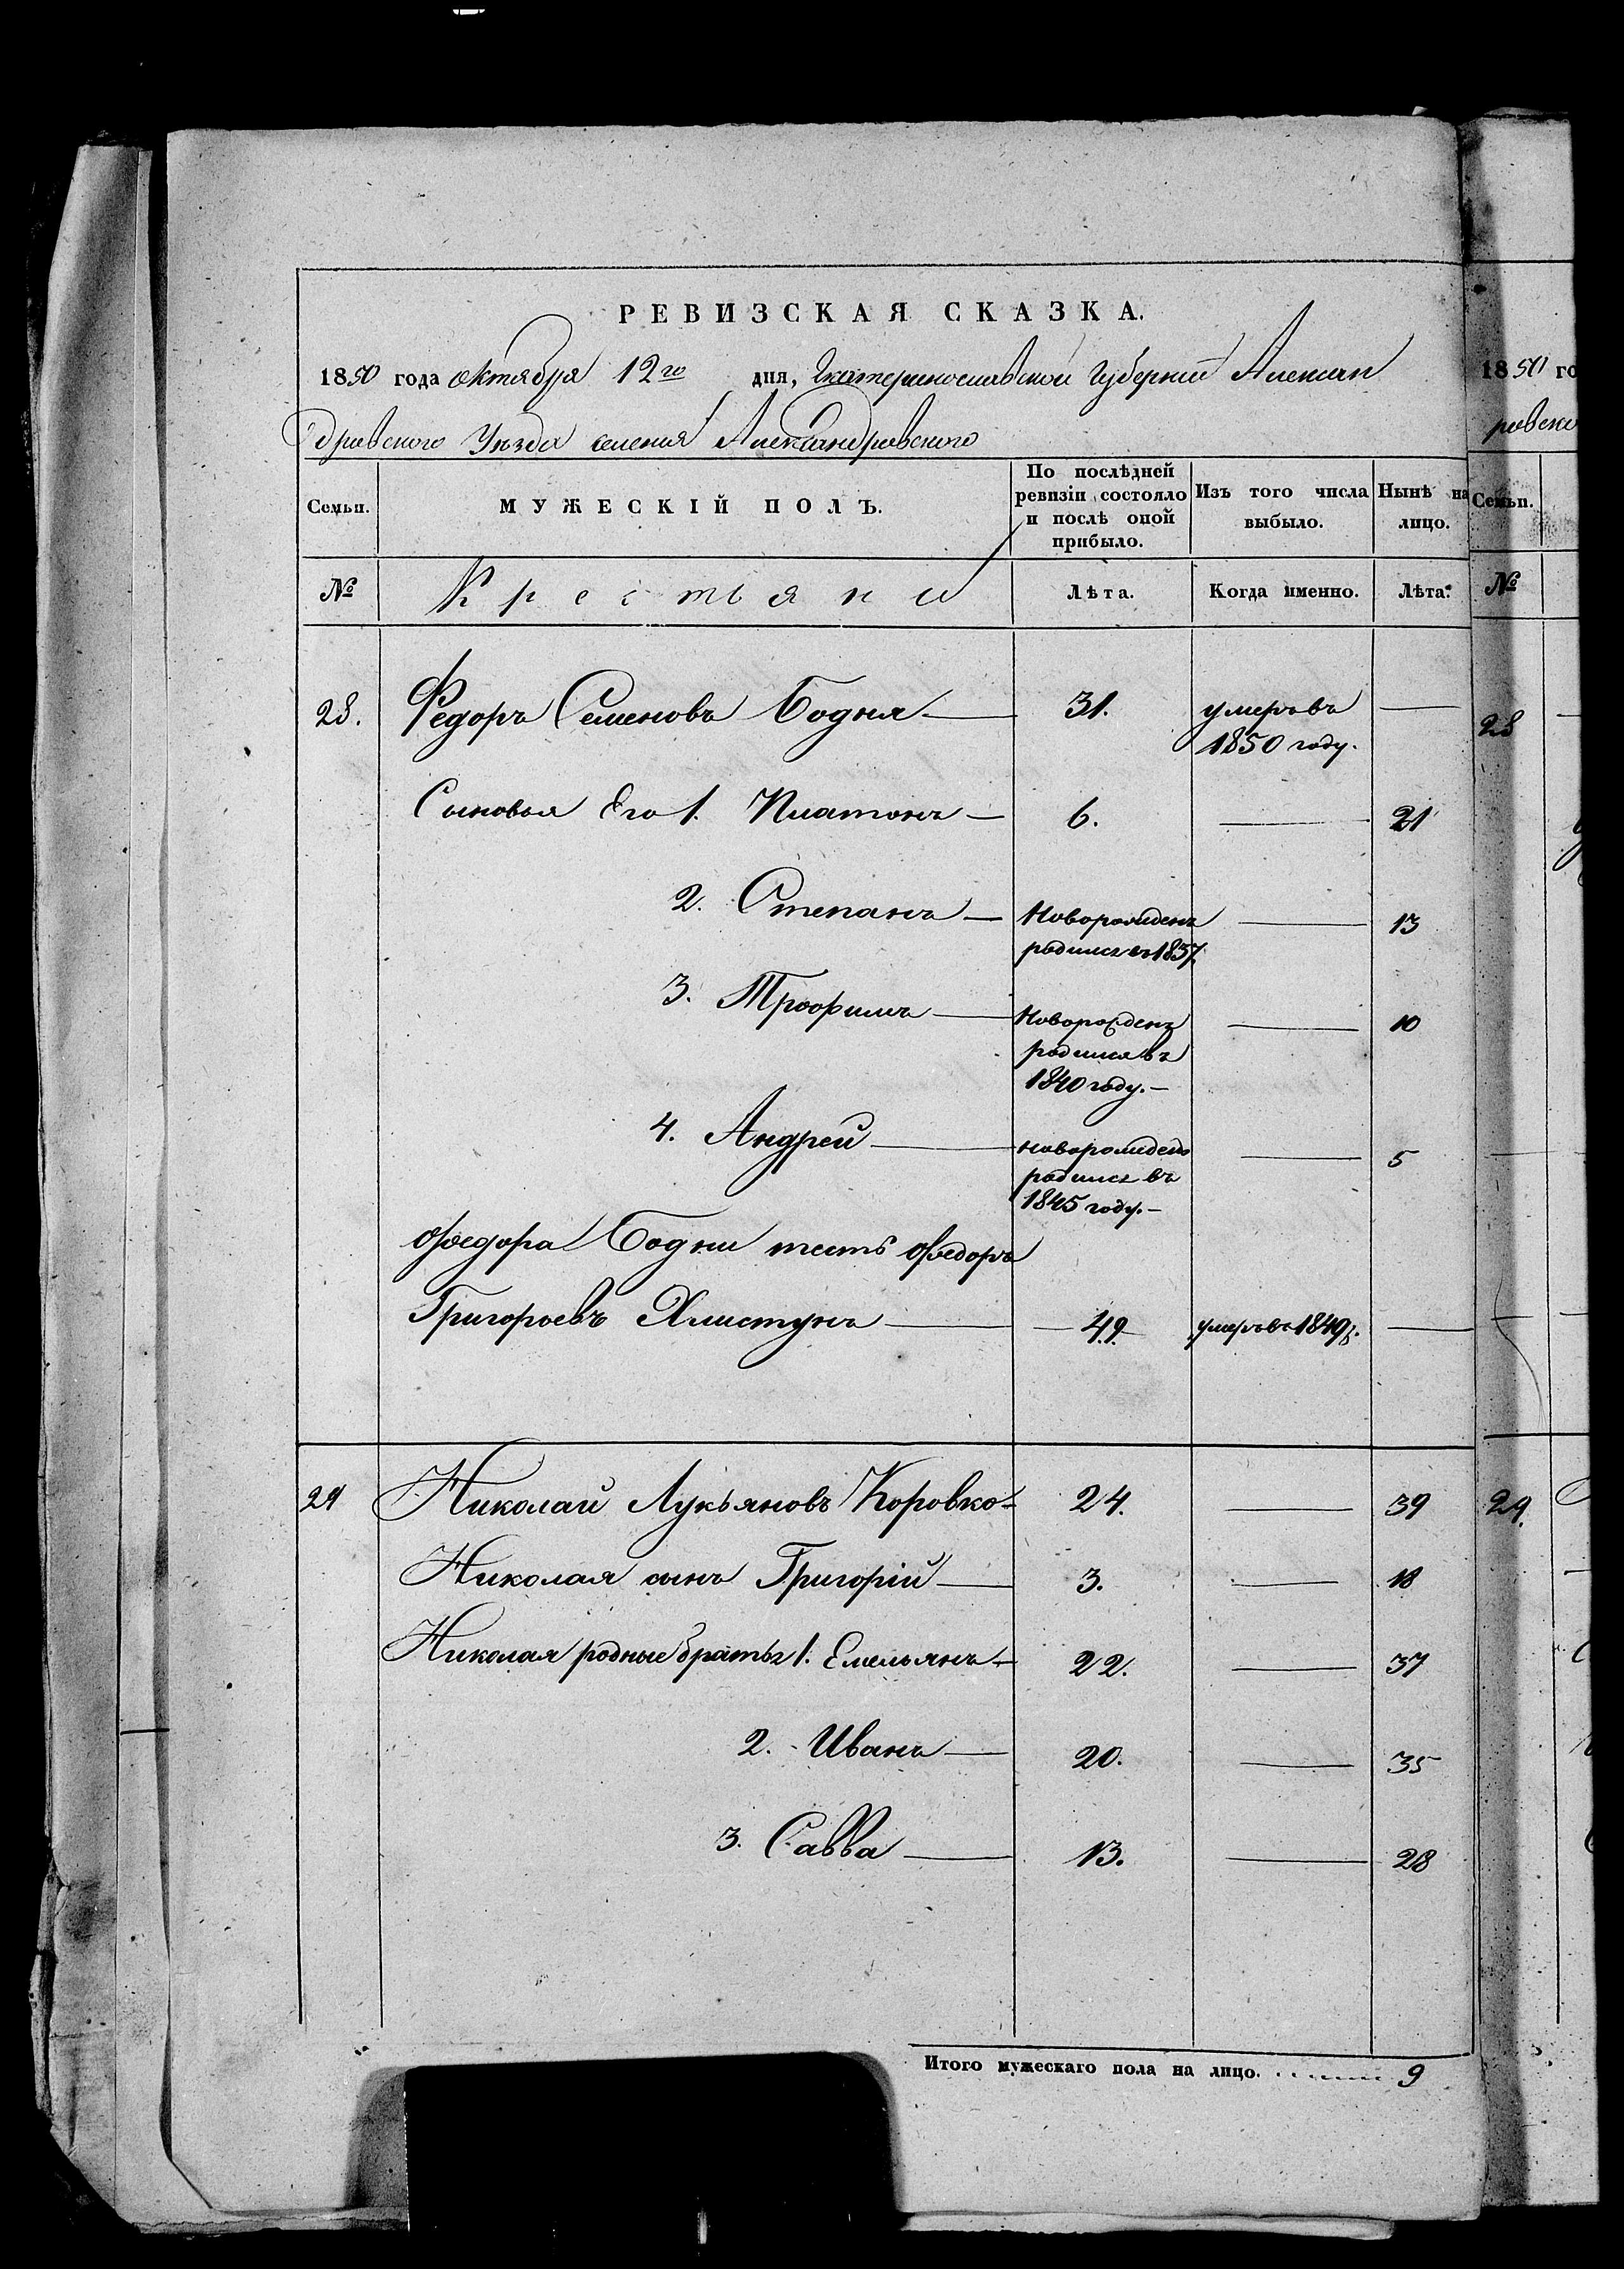 РЕВИЗСКАЯ СКАЗКА.
1850 года октября 12го дня, Екатеринославской Губернии Алексан
дровского Уезда селения Александровского
Семьи. МУЖЕСКІЙ ПОЛЪ. По послѣдней ревизіи состояло и послѣ оной прибыло. Изъ того числа выбыло. Нынѣ на лицо.
№ Крестьяни Лѣта. Когда именно. Лѣта.
28. Федоръ Семеновъ Бодня — 31. умеръ въ 1850 году. —
Сыновья Его 1. Платонъ — 6. — 21
2. Степанъ — Новорожденъ родился въ 1837. — 13
3. Трофимъ — Новорожденъ родился въ 1840 году. — — 10
4. Андрей — новорожденъ родился въ 1845 году. — — 5
Федора Бодни тесть Федоръ
Григорьевъ Хлистунъ — 49 умеръ въ 1849 г. —
29 Николай Лукьяновъ Коровко — 24. — 39
Николая сынъ Григорій — 3. — 18
Николая родные братья 1. Емельянъ — 22. — 37
2. Иванъ — 20. — 35
3. Савва — 13. — 28
Итого мужескаго пола на лицо. 9
1850 го
ровско
Семьи.
№
28
29.